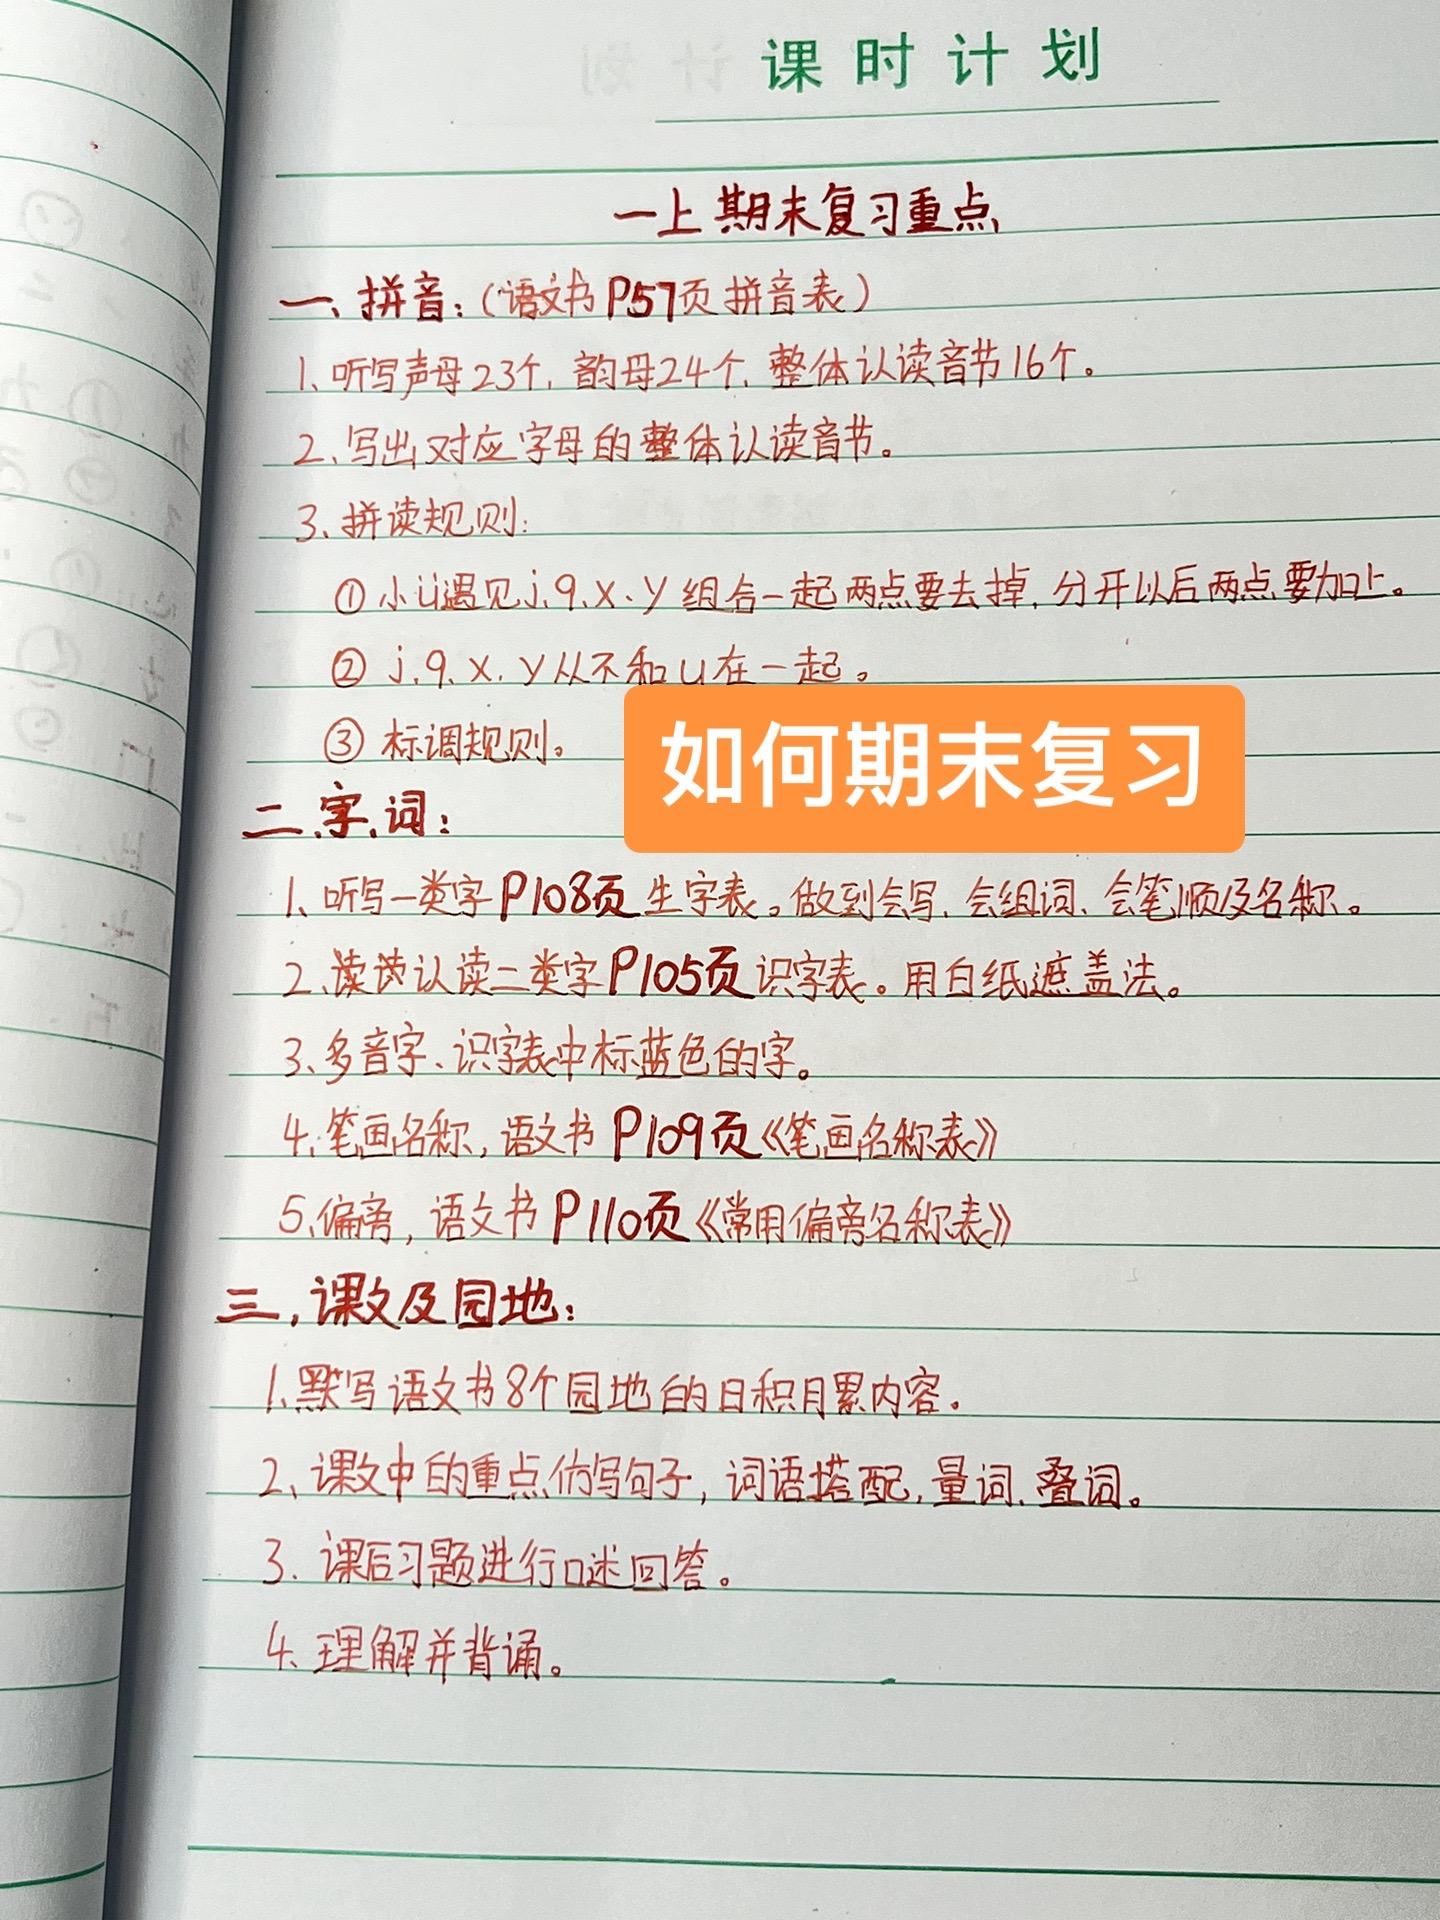 课时计划
一上期末复习重点
一、拼音：（语文书P57页拼音表）
1、听写声母23个，韵母24个，整体认读音节16个。
2、写出对应字母的整体认读音节。
3、拼读规则：
① 小ü遇见j、q、x、y组合一起两点要去掉，分开以后两点要加上。
② j、q、x、y从不和u在一起。
③ 标调规则。
如何期末复习
二、字、词：
1、听写一类字P108页生字表。做到会写、会组词、会笔顺及名称。
2、读认读二类字P105页识字表。用白纸遮盖法。
3、多音字、识字表中标蓝色的字。
4、笔画名称，语文书P109页《笔画名称表》
5、偏旁，语文书P110页《常用偏旁名称表》
三、课文及园地：
1、默写语文书8个园地的日积月累内容。
2、课文中的重点仿写句子，词语搭配，量词、叠词。
3、课后习题进行口述回答。
4、理解并背诵。